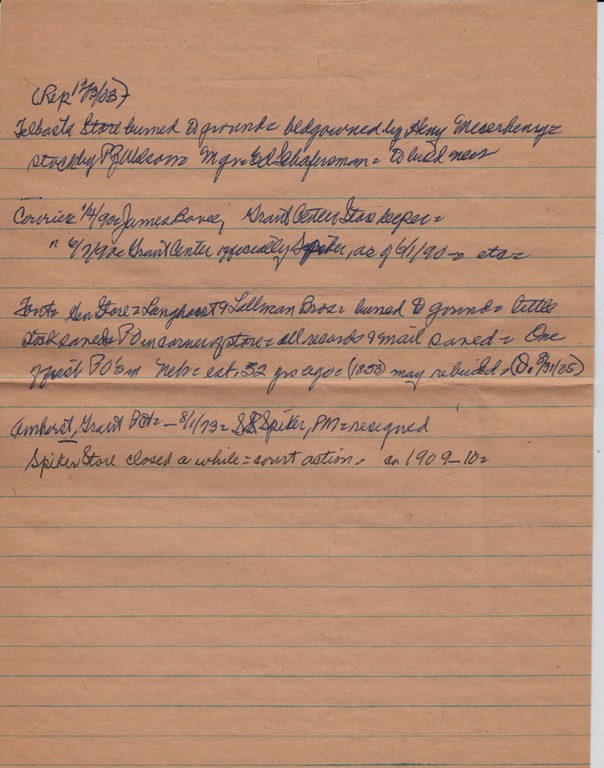 (Rep 12/3/03)
Telbasta Store burned to ground = bldg owned by Heny
stock by PJ Wilson = Mgr = Ed Schafersman = to build new
Courier 4/4/90 = James Bovee, Grant Center Store keeper =
" 6/7/90 = Grant Center officially Spiker, as of 6/1/90 = etc =
Font = Gen Store = Langhorst & Lallman Bros = burned to ground = little
stock saved = PO in corner of store = all records & mail saved = One
of first PO's in Neb = est. 52 yrs ago = (1853) may rebuild. (D. 3/31/05)
Amherst, Grant Pct = 8/1/73 = Spiker, PM = resigned
Spiker Store closed a while = court action. ca 1909-10 =